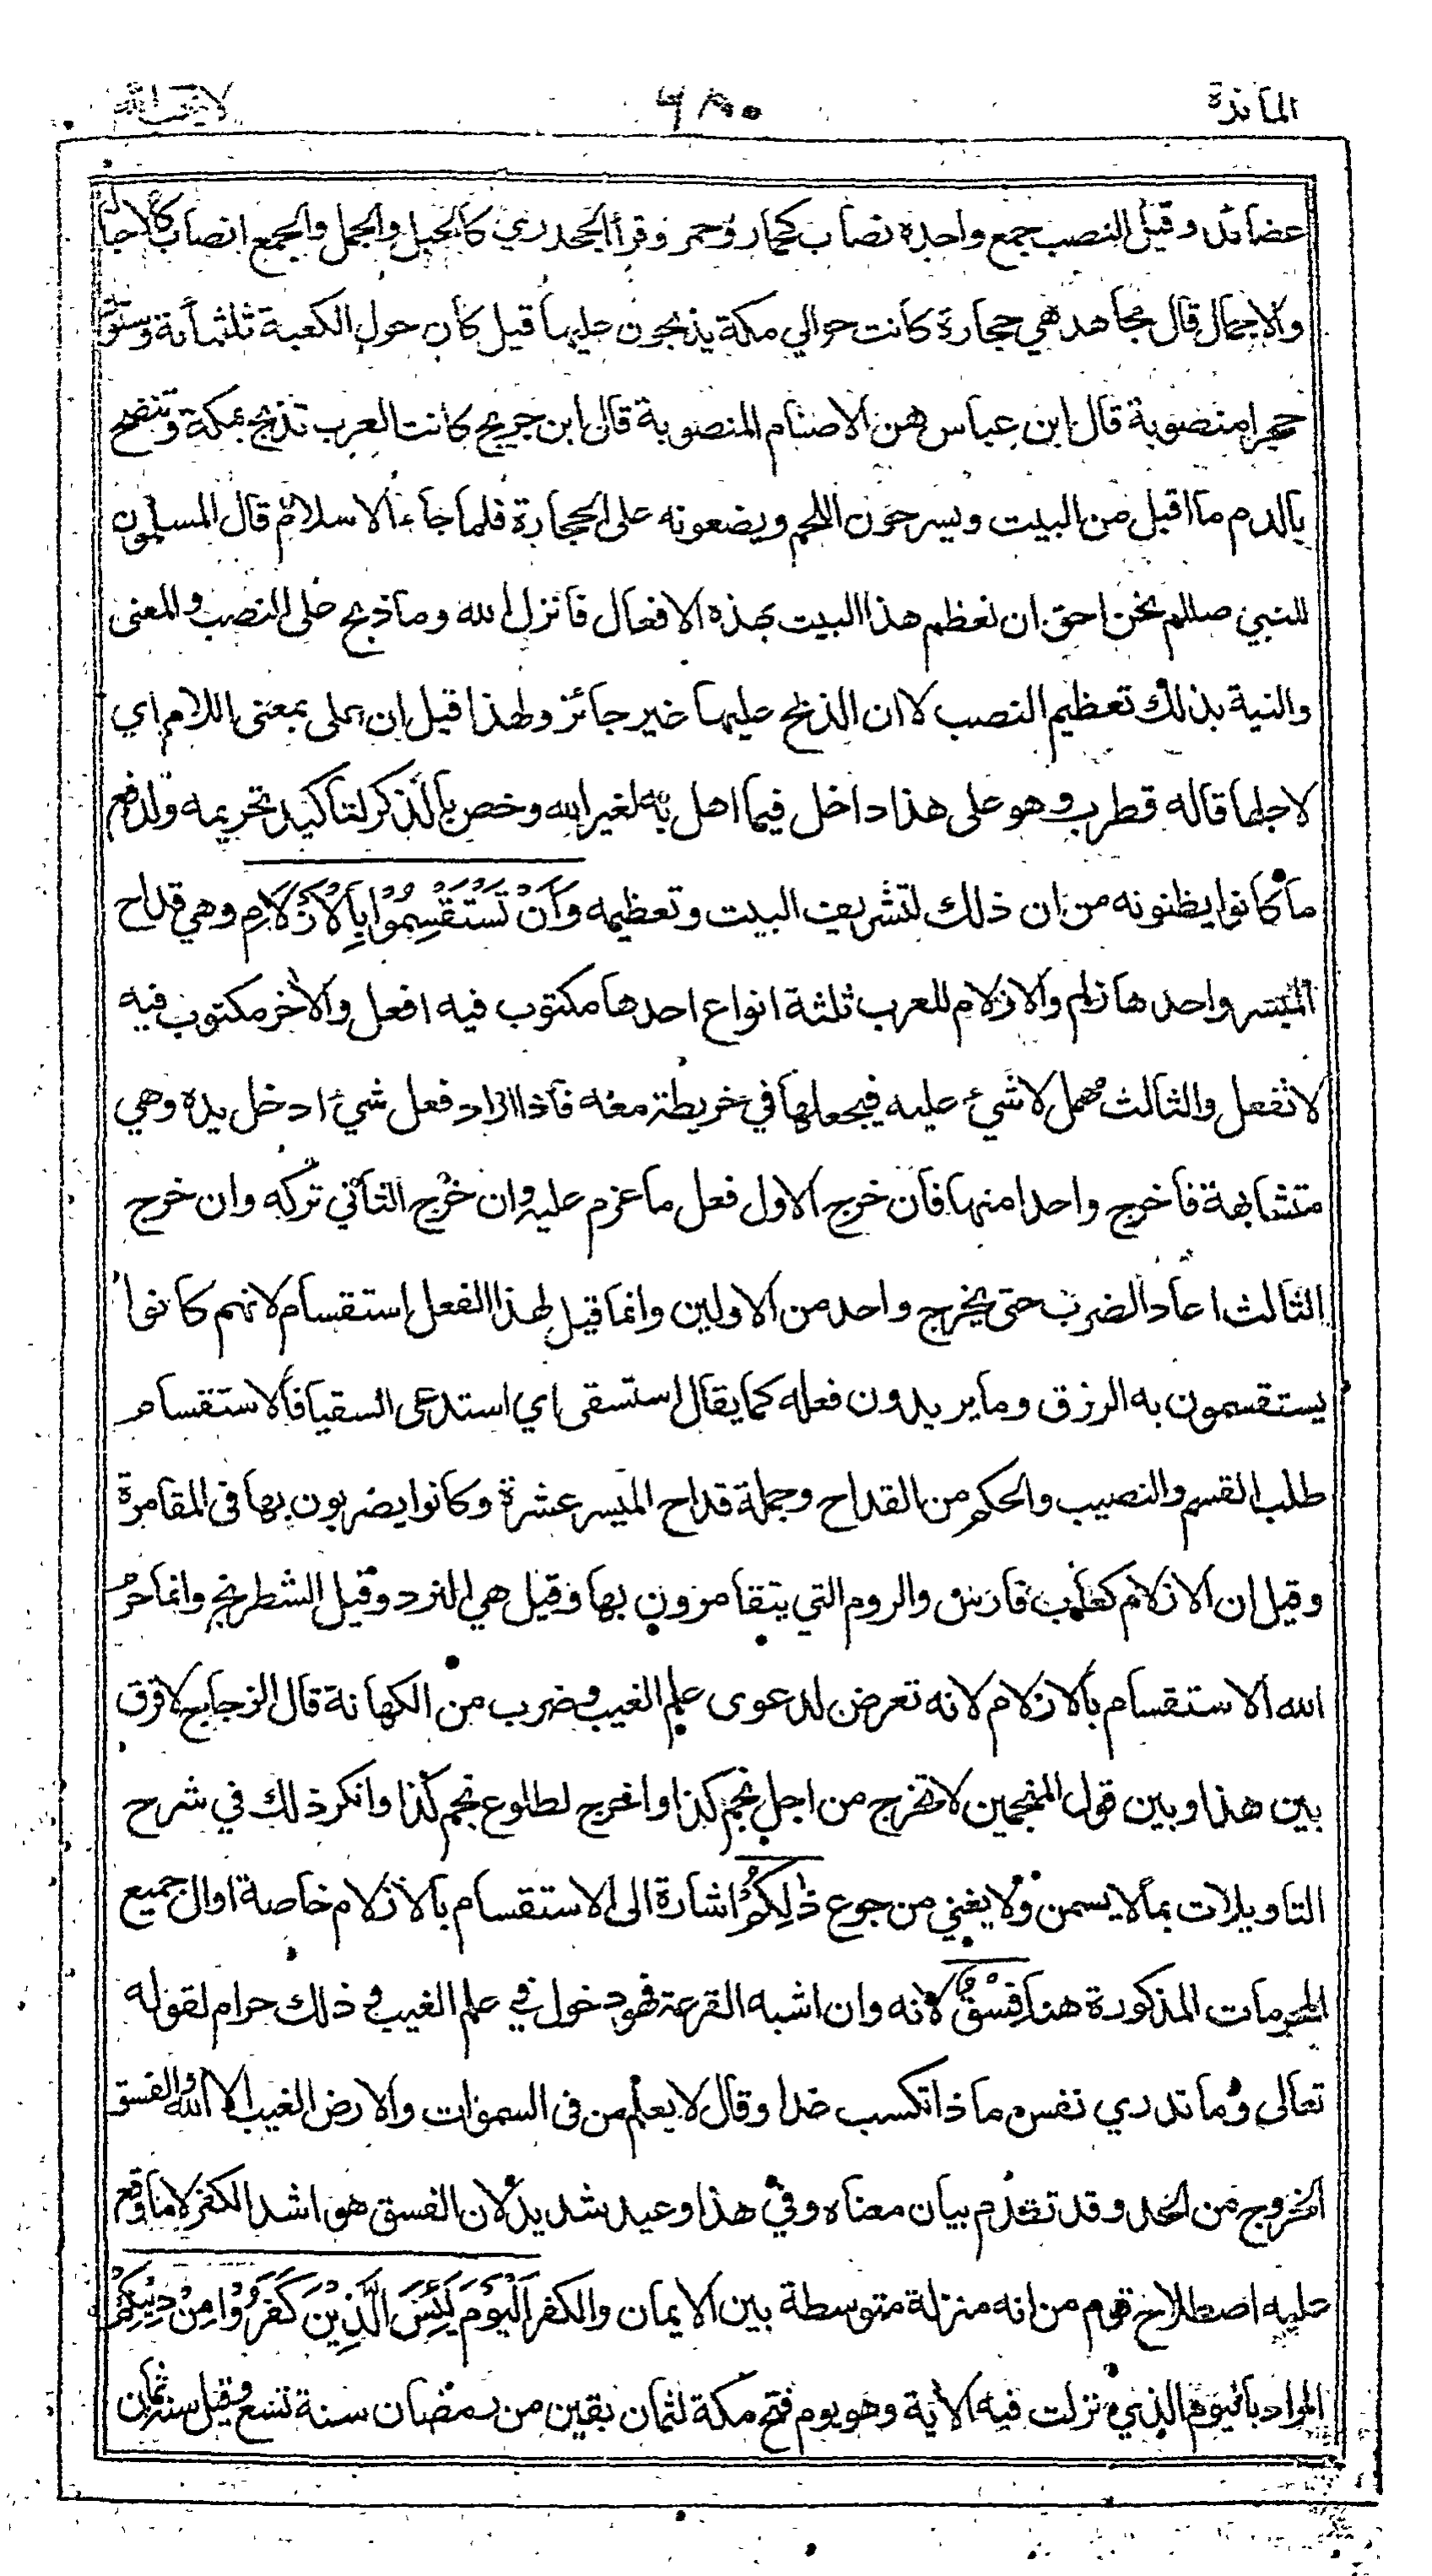 المائدة لا يحب الله
عضائد وقيل النصب جمع واحده نصاب كحمار وحمر وقرأ الجحدري كالحبل والجمل والجمع انصاب كالاحبال
والاجمال قال مجاهد هي حجارة كانت حوالي مكة يذبحون عليها قيل كان حول الكعبة ثلثمائة وستون
حجرا منصوبة قال ابن عباس هن الاصنام المنصوبة قال ابن جريج كانت العرب تذبح بمكة وتنضح
بالدم ما اقبل من البيت ويسرحون اللحم ويضعونه على الحجارة فلما جاء الاسلام قال المسلمون
للنبي صللم نحن احق ان نعظم هذا البيت بهذه الافعال فانزل الله وما ذبح على النصب والمعنى
والنية بذلك تعظيم النصب لا ان الذبح عليها غير جائز ولهذا قيل ان على بمعنى اللام اي
لاجلها قاله قطرب وهو على هذا داخل فيما اهل به لغير الله وخص بالذكر لتاكيد تحريمه ولدفع
ما كانوا يظنونه من ان ذلك لتشريف البيت وتعظيمه وَاَنْ تَسْتَقْسِمُوْا بِالْاَزْلَامِ وهي قداح
الميسر واحدها زلم والازلام للعرب ثلثة انواع احدها مكتوب فيه افعل والاخر مكتوب فيه
لا تفعل والثالث مهمل لا شيء عليه فيجعلها في خريطة معه فاذا اراد فعل شيء ادخل يده وهي
متشابهة فاخرج واحدا منها فان خرج الاول فعل ما عزم عليه وان خرج الثاني تركه وان خرج
الثالث اعاد الضرب حتى يخرج واحد من الاولين وانما قيل لهذا الفعل استقسام لانهم كانوا
يستقسمون به الرزق وما يريدون فعله كما يقال استسقى اي استدعى السقيا فالاستقسام
طلب القسم والنصيب والحكم من القداح وجملة قداح الميسر عشرة وكانوا يضربون بها في المقامرة
وقيل ان الازلام كعاب فارس والروم التي يتقامرون بها وقيل هي النرد وقيل الشطرنج وانما حرم
الله الاستقسام بالازلام لانه تعرض لدعوى علم الغيب وضرب من الكهانة قال الزجاج لا فرق
بين هذا وبين قول المنجمين لا تخرج من اجل نجم كذا واخرج لطلوع نجم كذا وانكر ذلك في شرح
التاويلات بما لا يسمن ولا يغني من جوع ذٰلِكُمْ اشارة الى الاستقسام بالازلام خاصة او الى جميع
المحرمات المذكورة هنا فِسْقٌ لانه وان اشبه القرعة فهو دخول في علم الغيب و ذلك حرام لقوله
تعالى وما تدري نفس ما ذا تكسب غدا وقال لا يعلم من في السموات والارض الغيب الا الله والفسق
الخروج من الحد وقد تقدم بيان معناه وفي هذا وعيد شديد لان الفسق هو اشد الكفر لا ما وقع
عليه اصطلاح قوم من انه منزلة متوسطة بين الايمان والكفر اَلْيَوْمَ يَئِسَ الَّذِيْنَ كَفَرُوْا مِنْ دِيْنِكُمْ
المراد باليوم الذي نزلت فيه الآية وهو يوم فتح مكة لثمان بقين من رمضان سنة تسع وقيل سنة ثمان